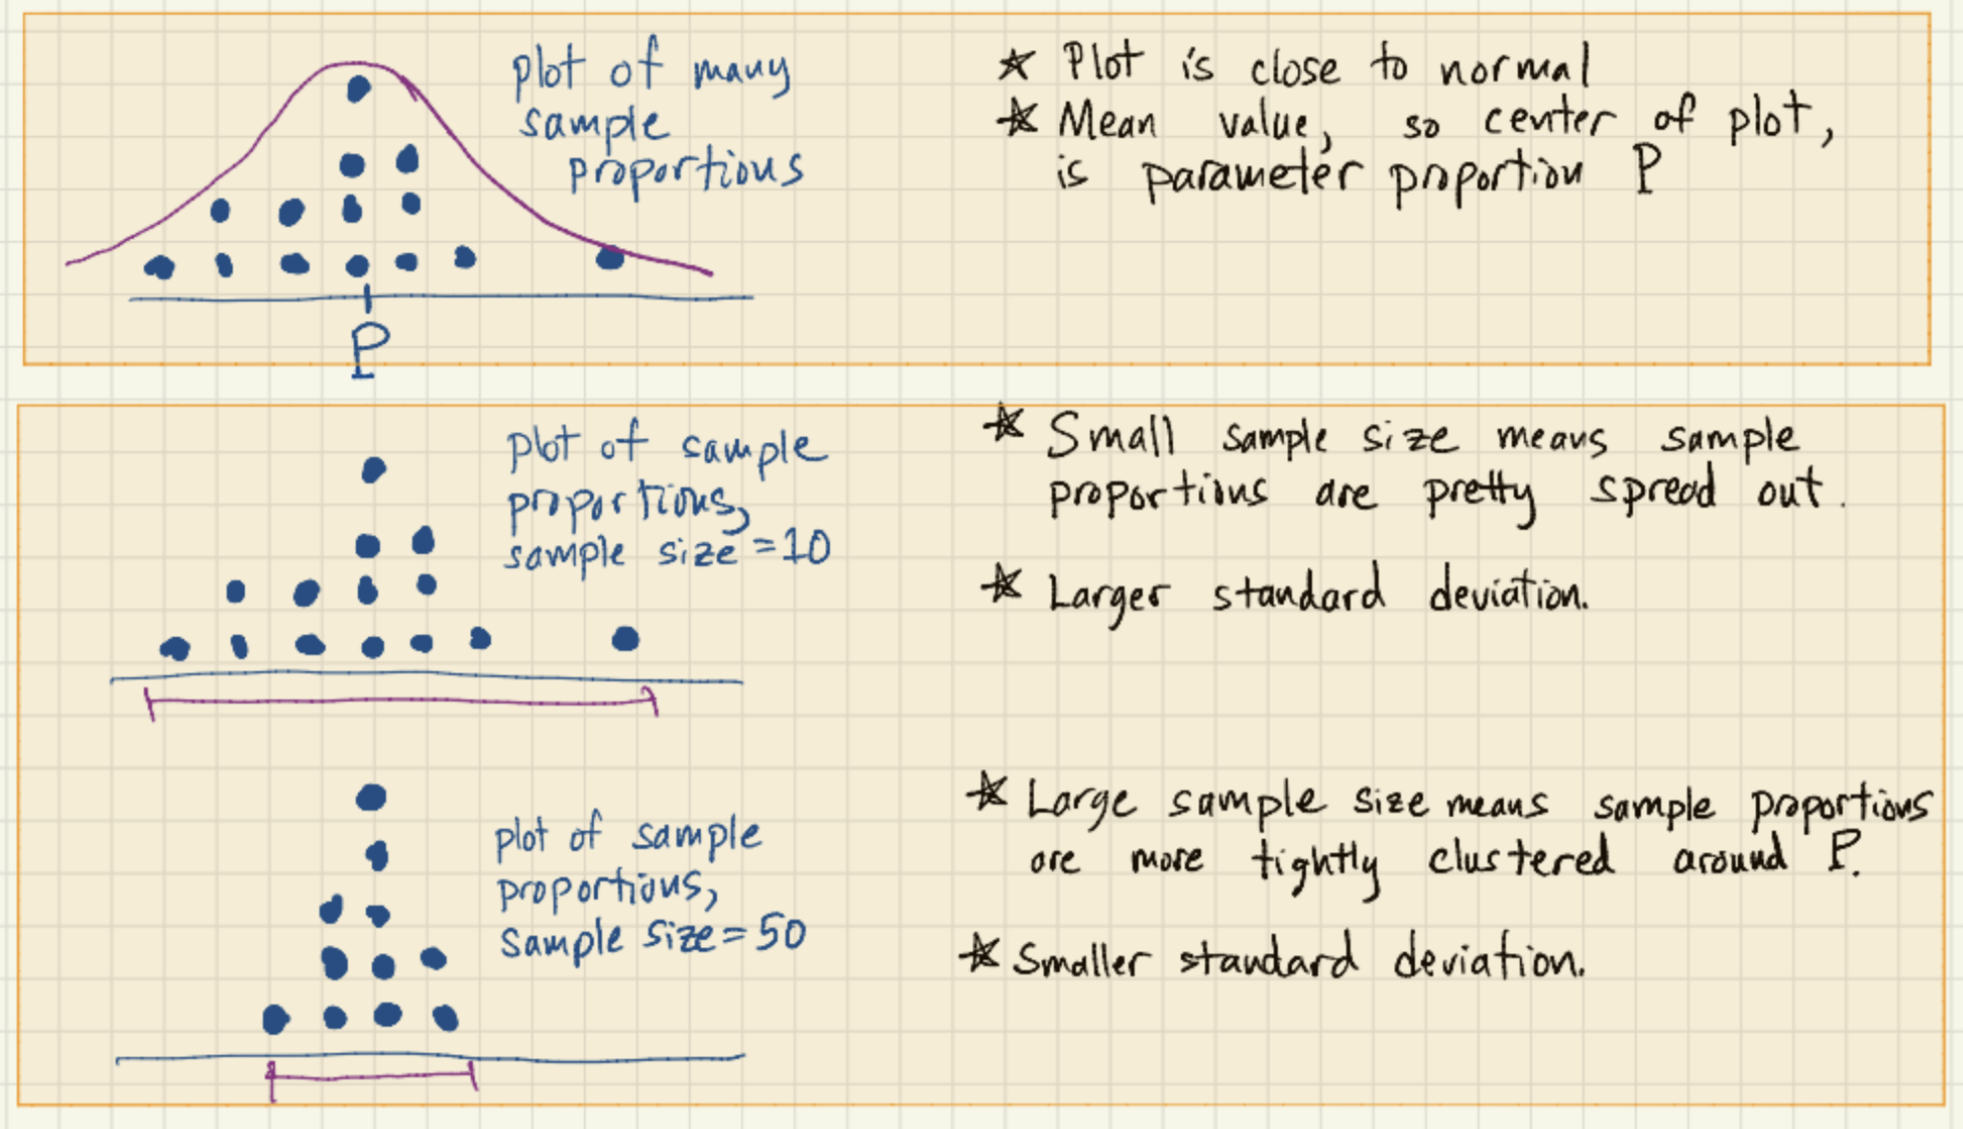 plot of many
sample
proportions
P
★ Plot is close to normal
★ Mean value, so center of plot,
is parameter proportion P
plot of sample
proportions,
sample size = 10
★ Small sample size means sample
proportions are pretty spread out.
★ Larger standard deviation.
plot of sample
proportions,
sample size = 50
★ Large sample size means sample proportions
are more tightly clustered around P.
★ Smaller standard deviation.